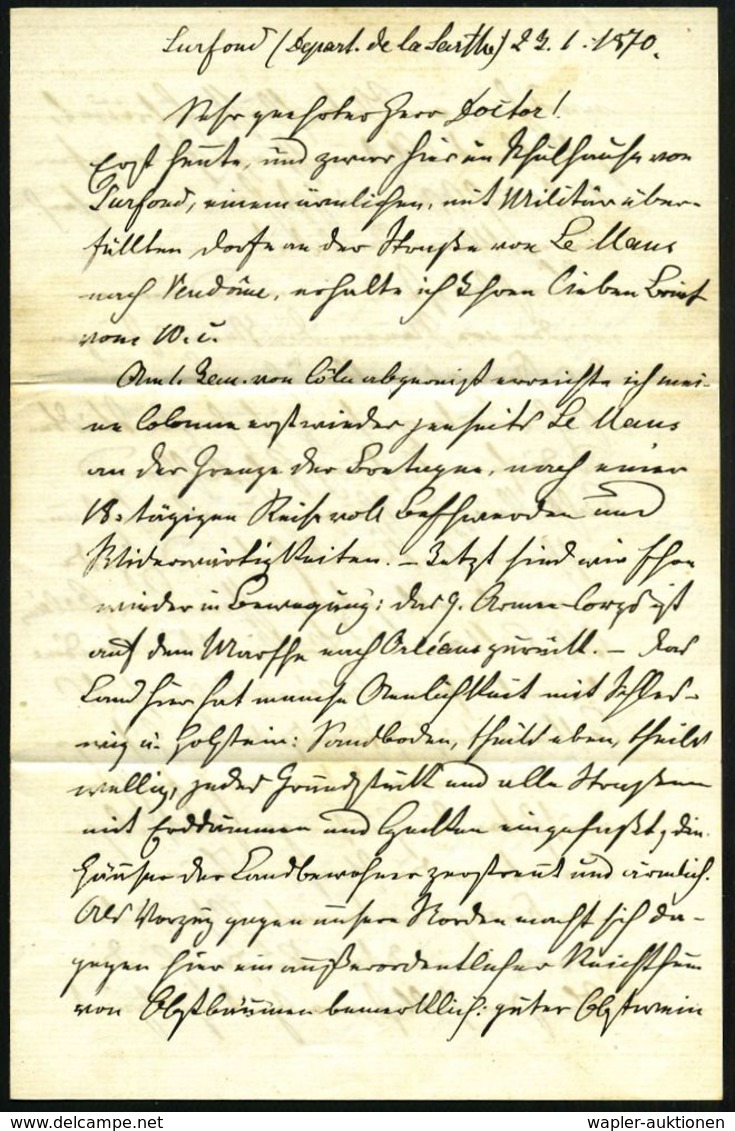 Surfond (Depart. de la Sarthe) 23.1.1870.
Sehr geehrter Herr Doctor!
Erst heute, und zwar hier im Schulhause von
Surfond, einem ärmlichen, mit Militär über-
füllten Dorfe an der Straße von Le Mans
nach Vendôme, erhalte ich Ihren lieben Brief
vom 10. c.
Am 1. Jan. von Cöln abgereist erreichte ich mei-
ne Colonne erst wieder jenseits Le Mans
an der Grenze der Bretagne, nach einer
18-tägigen Reise voll Beschwerden und
Widerwärtigkeiten. – Jetzt sind wir schon
wieder in Bewegung: das 9. Armee-Corps ist
auf dem Marsche nach Orléans zurück. – Das
Land hier hat manche Aenlichkeit mit Schles-
wig u. Holstein: Sandboden, theils eben, theils
wellig, jedes Grundstück und alle Straßen
mit Erddämmen und Hecken eingefaßt, die
Häuser der Landbewohner zerstreut und ärmlich.
Als Vorzug gegen unsern Norden macht sich da-
gegen hier ein außerordentlicher Reichthum
von Obstbäumen bemerklich: guter Obstwein
wapler-auktionen